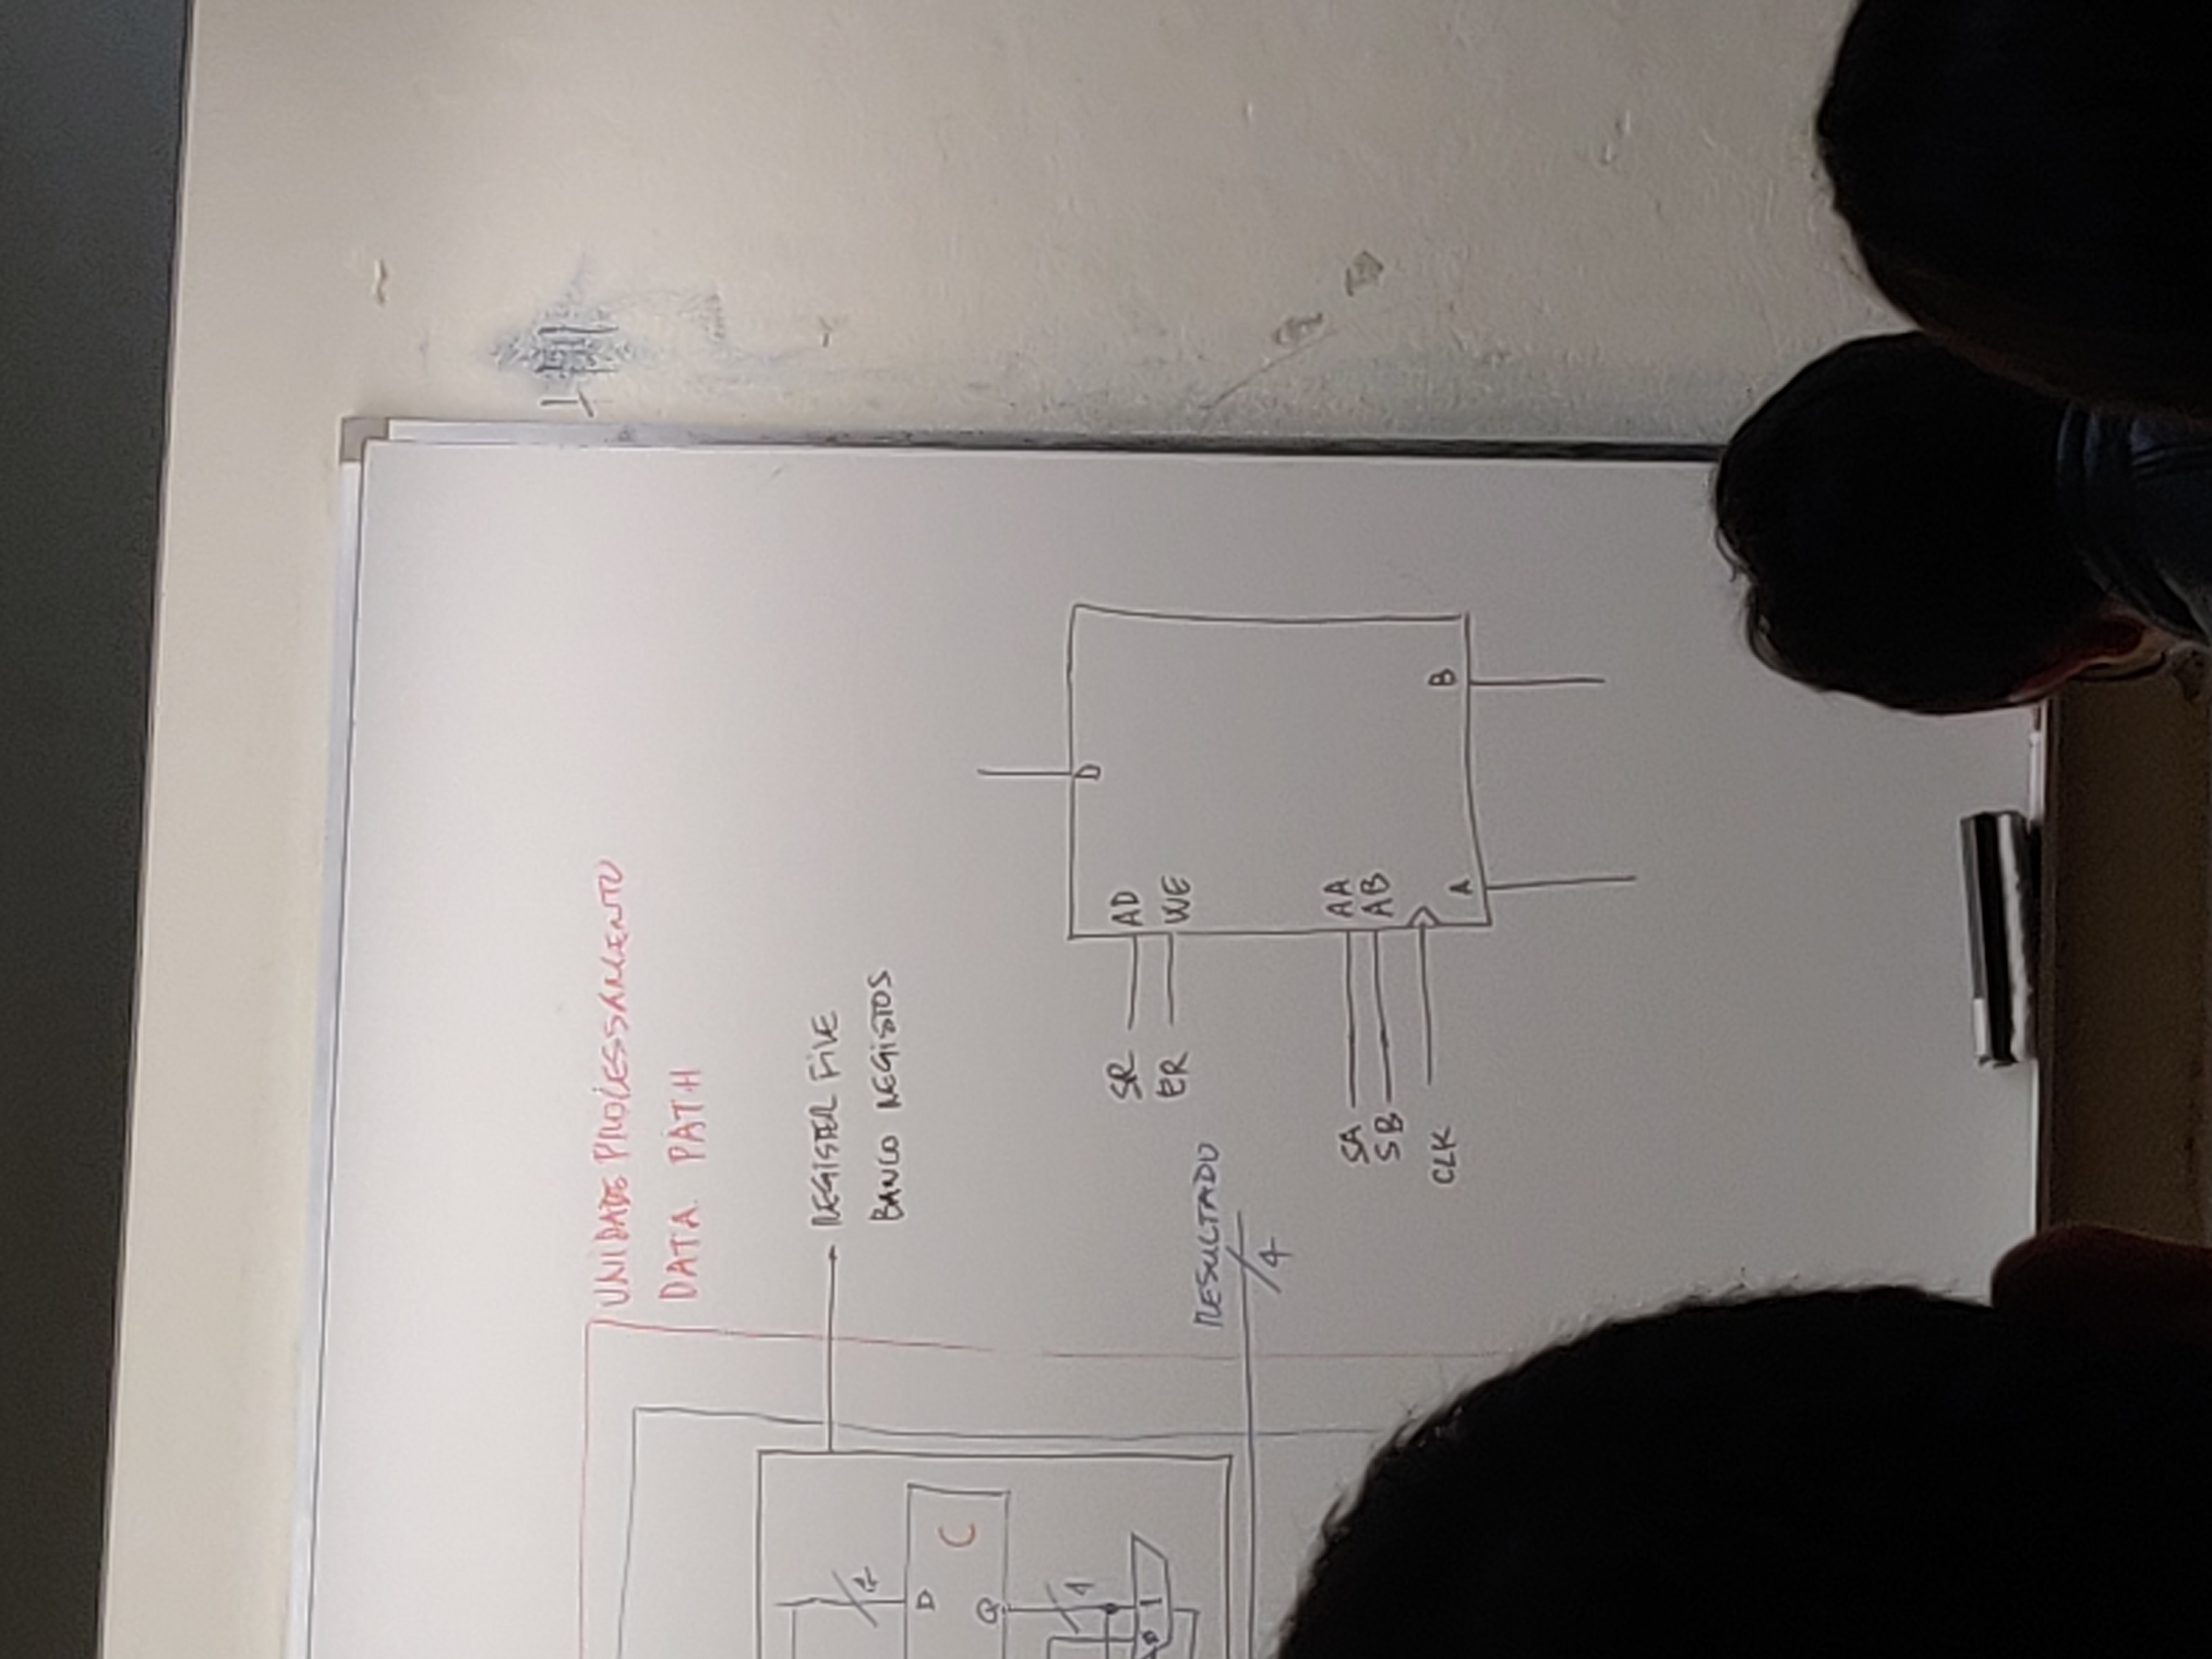 UNIDADE PROCESSAMENTO
DATA PATH
REGISTER FILE
BANCO REGISTOS
D
C
Q
4
1
RESULTADO
4
D
SR AD
ER WE
SA AA
SB AB
CLK
A B